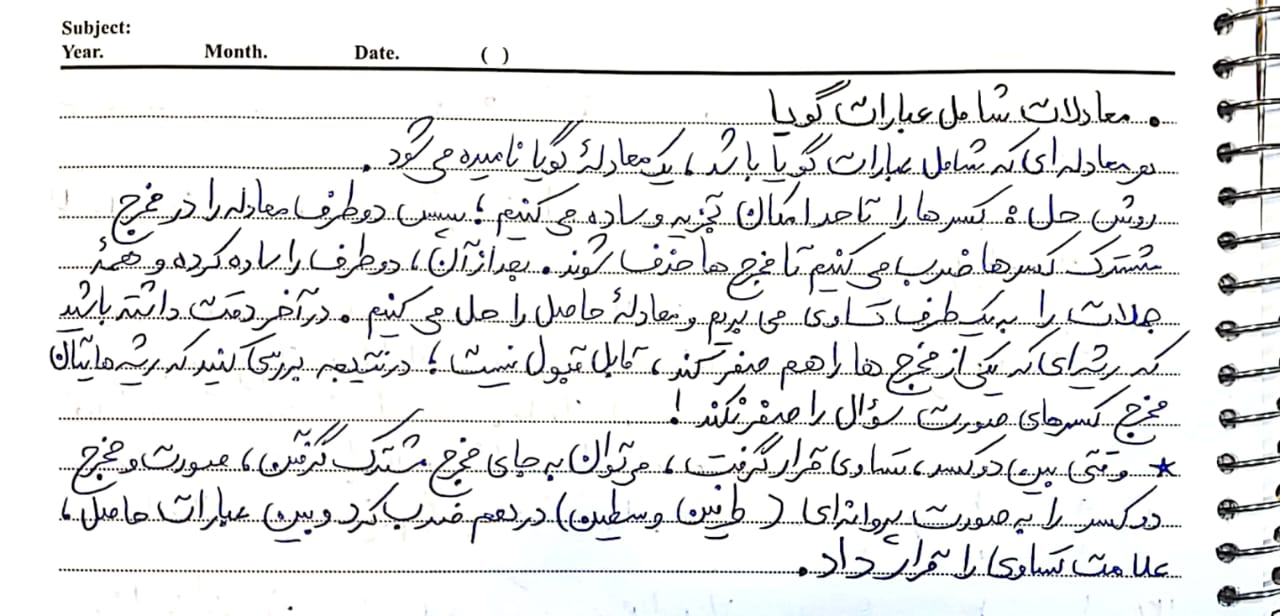 Subject:
Year. Month. Date. ( )
• معادلات شامل عبارات گویا
هر معادله‌ای که شامل عبارات گویا باشد، یک معادلهٔ گویا نامیده می‌شود.
روش حل: کسرها را تا حد امکان تجزیه و ساده می‌کنیم؛ سپس دو طرف معادله را در مخرج
مشترک کسرها ضرب می‌کنیم تا مخرج‌ها حذف شوند. بعد از آن، دو طرف را ساده کرده و همهٔ
جملات را به یک طرف تساوی می‌بریم و معادلهٔ حاصل را حل می‌کنیم. در آخر دقت داشته باشید
که ریشه‌ای که یکی از مخرج‌ها را هم صفر کند، قابل قبول نیست؛ در نتیجه بررسی کنید که ریشه‌هایتان
مخرج کسرهای صورت سؤال را صفر نکند!
★ وقتی بین دو کسر، تساوی قرار گرفت، می‌توان به جای مخرج مشترک گرفتن، صورت و مخرج
دو کسر را به صورت پروانه‌ای (طرفین وسطین) در هم ضرب کرد و بین عبارات حاصل،
علامت تساوی را قرار داد.